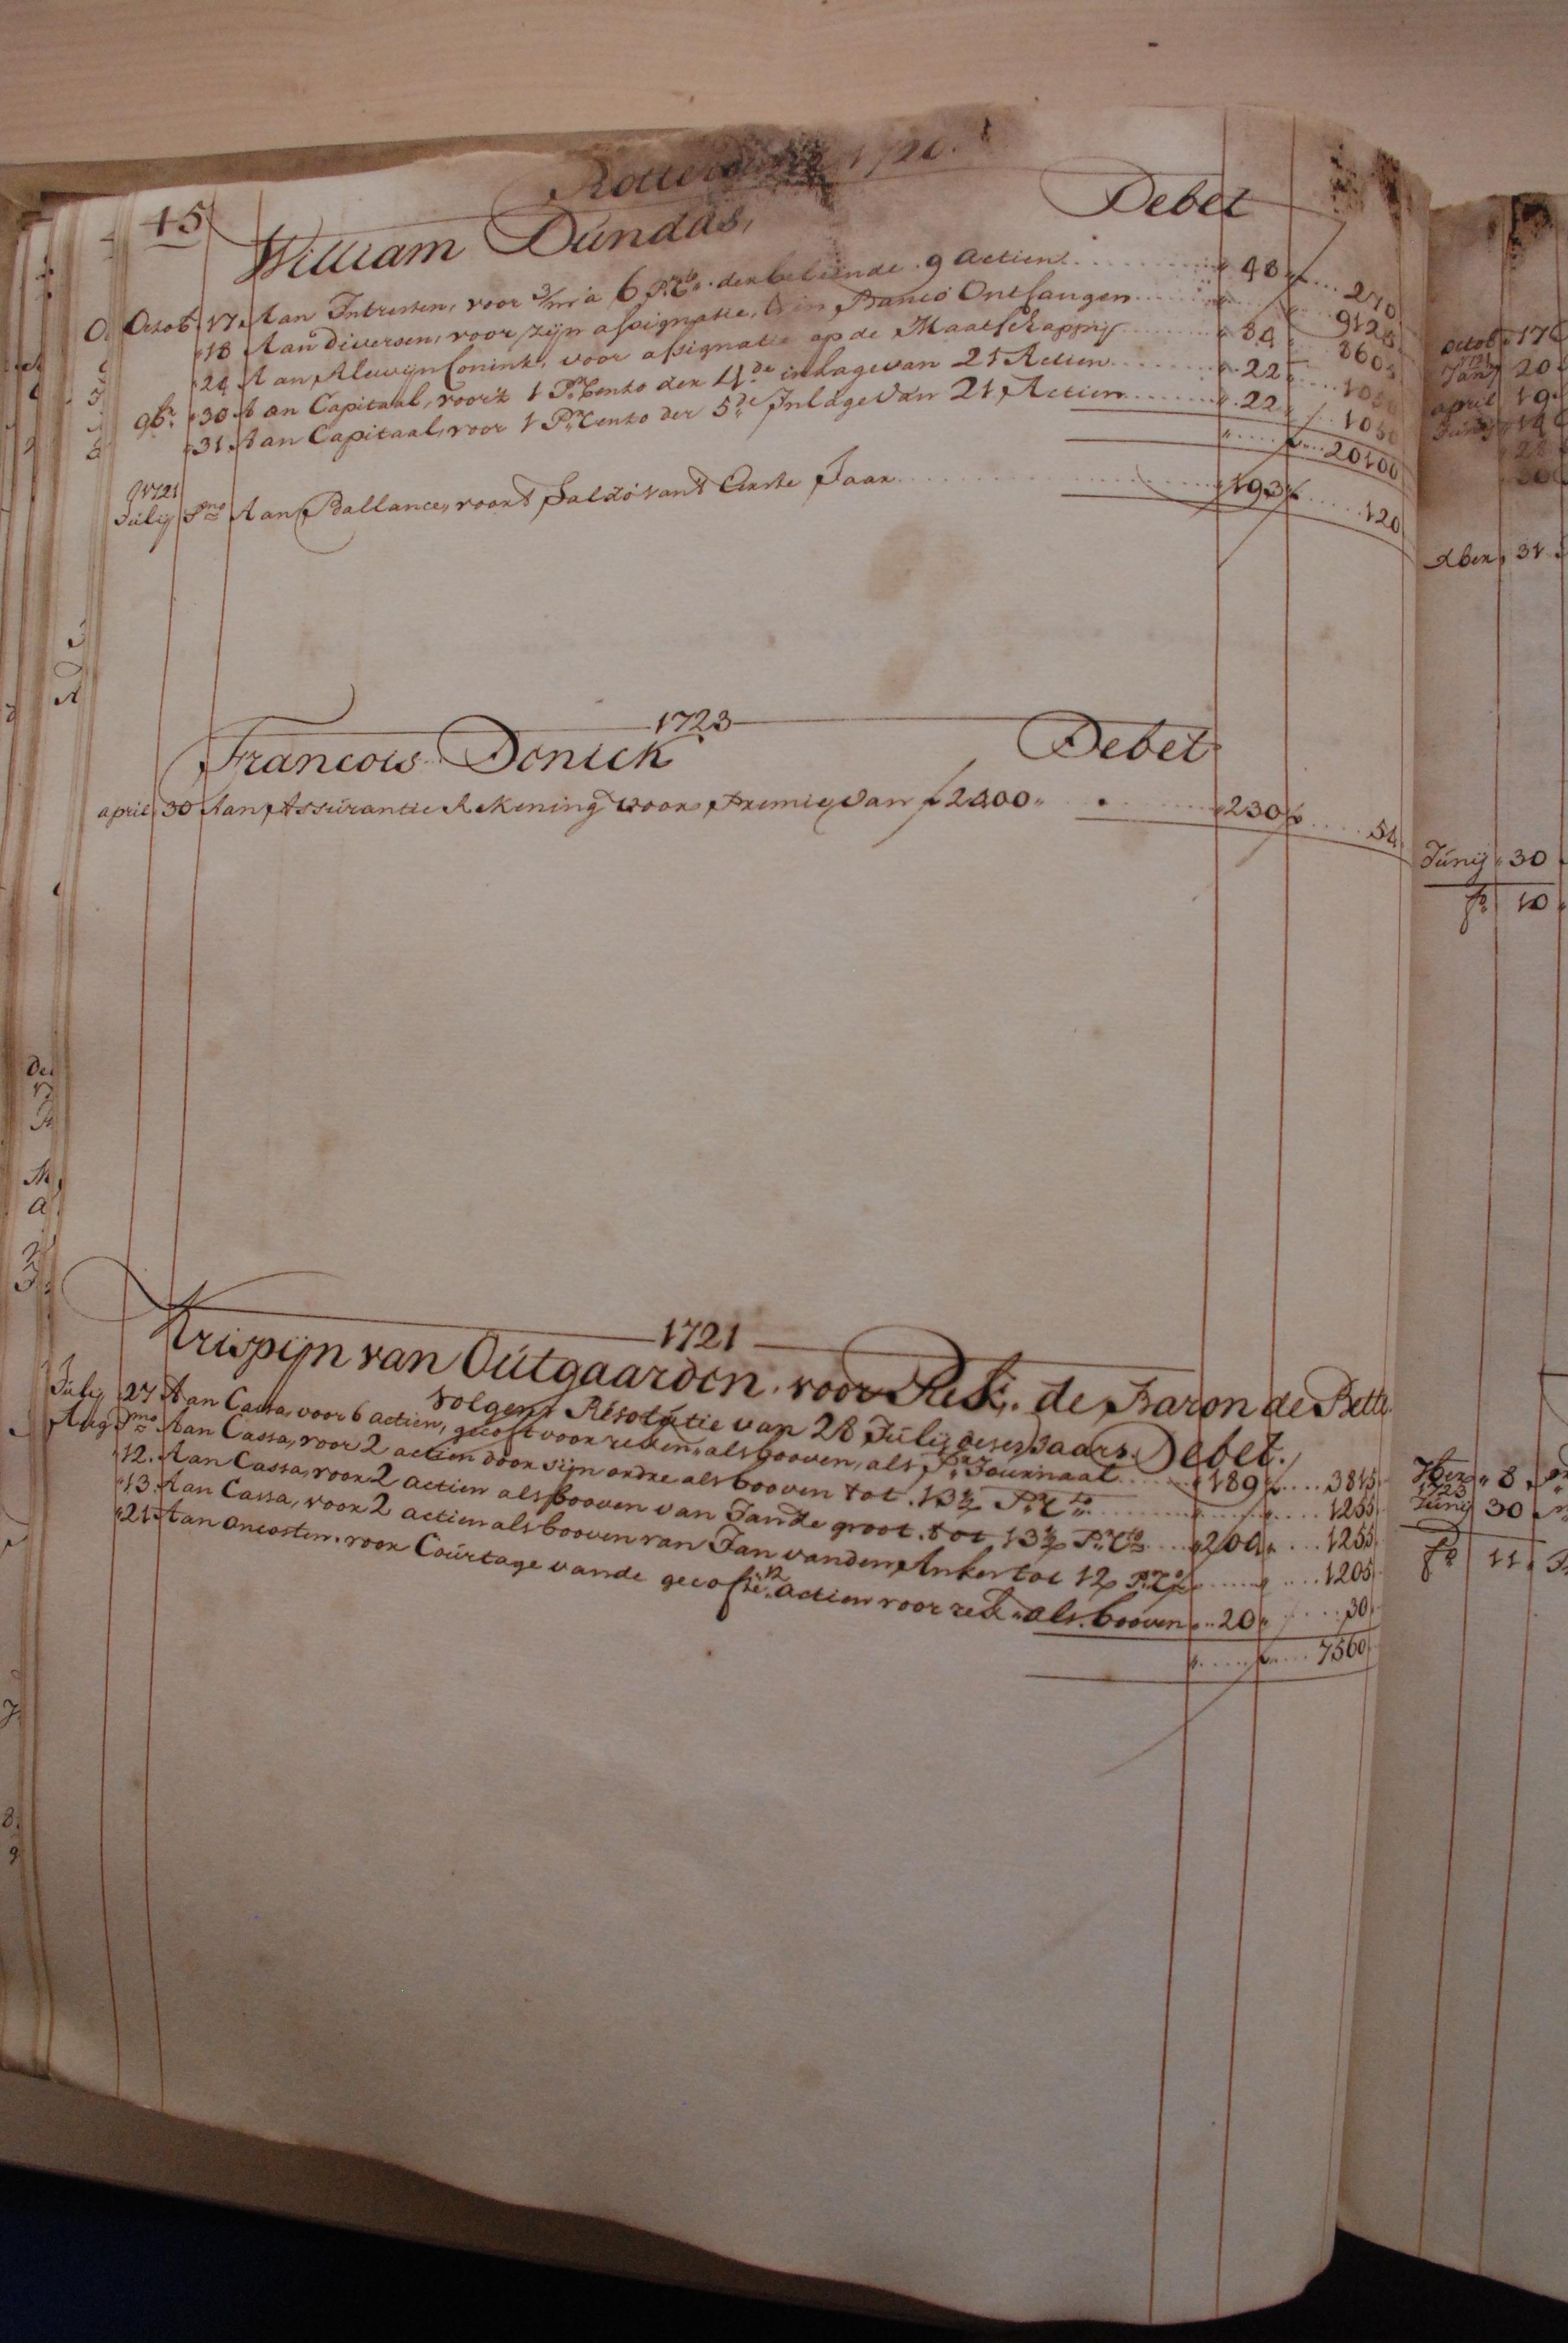 Rotterdam 1720.
15
William Dúndas, Debet
Octob. 17. Aan Intresten, voor 3/m à 6 Pr. Cto. der beleende 9 actien 48 270
18 Aan diversen, voor zijn assignatie, in Banco Ontfangen 912
24 Aan Alewijn Conink, voor assignatie op de Maatschappij 34 860
9br. 30 Aan Capitaal, voor 't 1 Pr. Cento der 4de inlage van 21 Actien 22 1050
31 Aan Capitaal, voor 1 Pr. Cento der 5de Inlage van 21 Actien 22 1050
20100
1721
Júlij Pmo Aan Ballance, voor 't Saldo van 't Eerste Jaar 193 120
1723
Francois Donick Debet
april 30 Aan Assúrantie Rekening voor Premie van f 2400 230 54
1721
Krispijn van Oútgaarden voor Rek. de Baron de Bette
volgens Resolútie van 28 Júlij deses Jaars. Debet.
Júlij 27 Aan Cassa, voor 6 actien, gecoft voor reken. als booven, als Pr. Journaal 189 3815
Aug. Pmo Aan Cassa, voor 2 actien door sijn ordre als booven tot 13½ Pr. Cto 1255
12. Aan Cassa, voor 2 actien als booven van Jan de groot tot 13½ Pr. Cto 200 1255
13. Aan Cassa, voor 2 actien als booven van Jan vanden Anker tot 12 Pr. Co 1205
21 Aan oncosten voor Coúrtage vande gecofte 12 actien voor rek. als booven 20 30
7560
octob. 17
1721
Jan. 20
april 19
Júnij 14
30
Xber, 31
Júnij 30
fo. 10
8
1723
Júnij 30
fo. 11